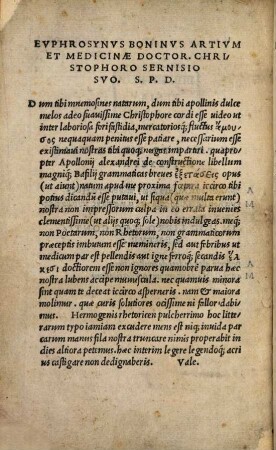 EVPHROSYNVS BONINVS ARTIVM
ET MEDICINÆ DOCTOR. CHRI
STOPHORO SERNISIO
SVO. S. P. D.
Dum tibi mnemosines natarum, dum tibi apollinis dulce
melos adeo suauissime Christophore cordi esse uideo ut
inter laboriosa fori fastidia, mercatorios fluctus
nequaquam penitus esse patiare, necessarium esse
existimaui nostras tibi quoq; uegetas impartiri. quapro
pter Apollonij alexandrei de constructione libellum
magniq; Basilij grammatices breues ἐξετάσεις opus
(ut aiunt) nauum apud me proxima fœtura iccirco tibi
potius dicandū esse putaui, ut siqua (quæ multa erunt)
nostra non impressorum culpa in eo errata inuenies
clementissime (ut alijs quoq; sole) nobis indulgeas. neq;
non Poetarum, non Rhetorum, non grammaticorum
præceptis imbutum esse memineris, sed aut febribus ut
medicum par est pellendis aut igne ferroq; secandis
doctorem esse non ignores quamobrē parua hæc
nostra lubens accipe munuscula. nec quamuis minora
sint quam te deceat iccirco asperneris. nam & maiora
molimur. quæ curis solutiores ocissime ni fallor dabi⸗
mus. Hermogenis rhetoricen pulcherrimo hoc litte⸗
rarum typo iamiam excudere mens est niq; inuida par
carum manus fila nostra truncare nimis properabit in
dies altiora petemus. hæc interim legere legendoq; acri
us castigare non dedignaberis. Vale.